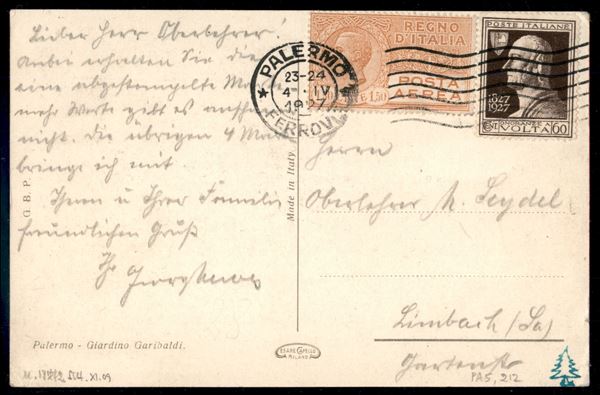 Lieber Herr Oberlehrer!
Anbei erhalten Sie die
eine abgestempelte
mehr Werte gibt es
nicht. Die übrigen 4
bringe ich mit.
Ihnen u Ihrer Familie
freundlichen Gruß
Ihr
G.B.P.
Palermo - Giardino Garibaldi.
Made in Italy
CESARE CAPELLO
MILANO
PALERMO
23-24
4 · IV
1927
FERROVIA
REGNO
D'ITALIA
POSTA
AEREA
1,50
POSTE ITALIANE
1827
1927
CENT
ONORANZE A
VOLTA 60
Herrn
Oberlehrer M. Seydel
Limbach (Sa)
Gartenstr
PAS, 212
XI.09